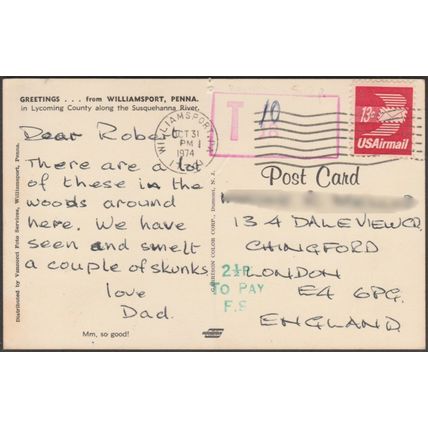 GREETINGS . . . from WILLIAMSPORT, PENNA.
in Lycoming County along the Susquehanna River.
Dear Robert
There are a lot
of these in the
woods around
here. We have
seen and smelt
a couple of skunks
love
Dad.
Mm, so good!
Distributed by Vannucci Foto Services, Williamsport, Penna.
WILLIAMSPORT
OCT 31
PM
1974
T
10
13c
USAirmail
Post Card
134 DALEVIEW CR.
CHINGFORD
LONDON
E4 6PG.
ENGLAND
TO PAY